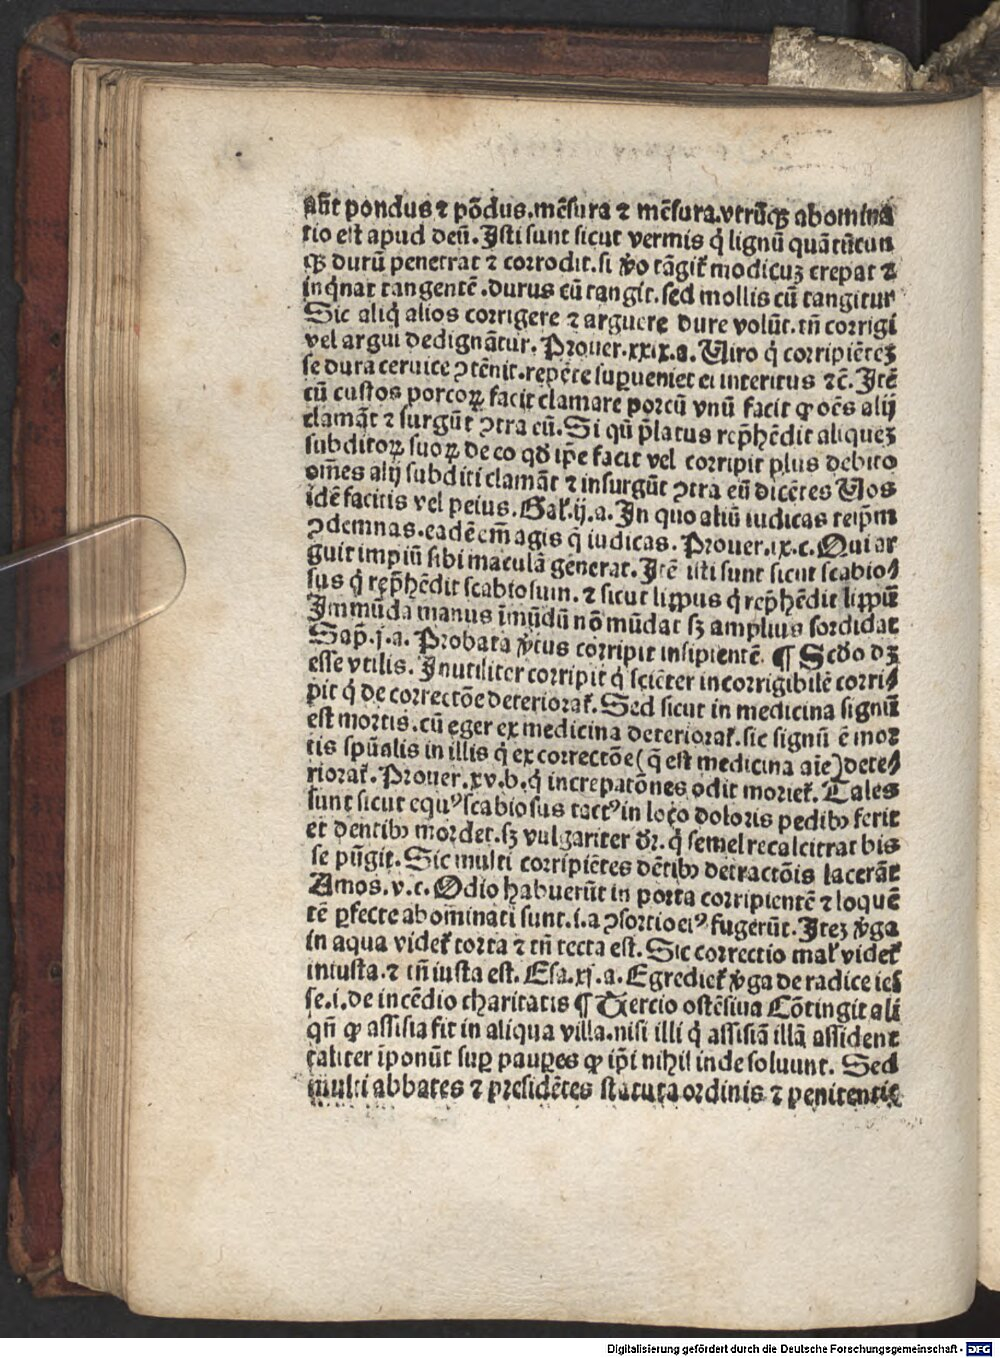 ābt pondus ⁊ põdus.mēsura ⁊ mēsura.vtrūqꝫ abomina
tio est apud deū. Isti sunt sicut vermis q̇ lignū quātūcun
qꝫ durū penetrat ⁊ corrodit.si v̊o tāgit᷑ modicuꝫ crepat ⁊
inq̇nat tangentē.durus cū tangit.sed mollis cū tangitur
Sic aliq̇ alios corrigere ⁊ arguere dure volūt.tñ corrigi
vel argui dedignātur. Prouer.xxix.a. Uiro q̇ corripiētēꝫ
se dura ceruice ꝯtēnit.repēte suꝑueniet ei interitus ⁊c̄. Itē
cū custos porcoꝝ facit clamare porcū vnū facit ꝙ oēs alij
clamāt ⁊ surgūt ꝯtra eū. Si qñ p̄latus rep̄hēdit aliqueꝫ
subditoꝝ suoꝝ de eo qd̄ ip̄e facit vel corripit plus debito
om̄es alij subditi clamāt ⁊ insurgūt ꝯtra eū dicētes Uos
idē facitis vel peius. Gal᷑.ij.a. In quo aliū iudicas teip̄m
ꝯdemnas.eadē em̄ agis q̄ iudicas. Prouer.ix.c. Qui ar
guit impiū sibi maculā generat. Itē isti sunt sicut scabio⸗
sus q̇ rep̄hēdit scabiosum. ⁊ sicut lippus q̇ rep̄hēdit lippū
Immūda manus īmūdū nō mūdat sꝫ amplius sordidat
Sap̄.j.a. Probata v̊tus corripit insipientē. ¶ Scd̄o dꝫ
esse vtilis. Inutiliter corripit q̇ sciēter incorrigibilē corri⸗
pit q̇ de correctōe deteriorat᷑. Sed sicut in medicina signū
est mortis.cū eger ex medicina deteriorat᷑.sic signū ē mor
tis spūalis in illis q̇ ex correctōe (q̄ est medicina aīe) dete⸗
riorat᷑. Prouer.xv.b.q̇ increpatōnes odit moriet᷑. Tales
sunt sicut equꝰ scabiosus tactꝰ in loco doloris pedibꝫ ferit
et dentibꝫ mordet.sꝫ vulgariter dr̄. q̇ semel recalcitrat bis
se pūgit. Sic multi corripiētes dētibꝫ detractōis lacerāt
Amos.v.c. Odio habuerūt in porta corripientē ⁊ loquē
tē ꝑfecte abominati sunt.i.a ꝯsortio eiꝰ fugerūt. Iteꝫ v̊ga
in aqua videt᷑ torta ⁊ tñ recta est. Sic correctio mal᷑ videt᷑
iniusta.⁊ tñ iusta est. Esa.xj.a. Egrediet᷑ v̊ga de radice ies
se.i.de incēdio charitatis ¶ Tercio ostēsiua Cōtingit ali
qñ ꝙ assisia fit in aliqua villa.nisi illi q̇ assisiā illā assident
taliter īponūt suꝑ pauꝑes ꝙ ip̄i nihil inde soluunt. Sed
multi abbates ⁊ presidētes statuta ordinis ⁊ penitentie
Digitalisierung gefördert durch die Deutsche Forschungsgemeinschaft - DFG